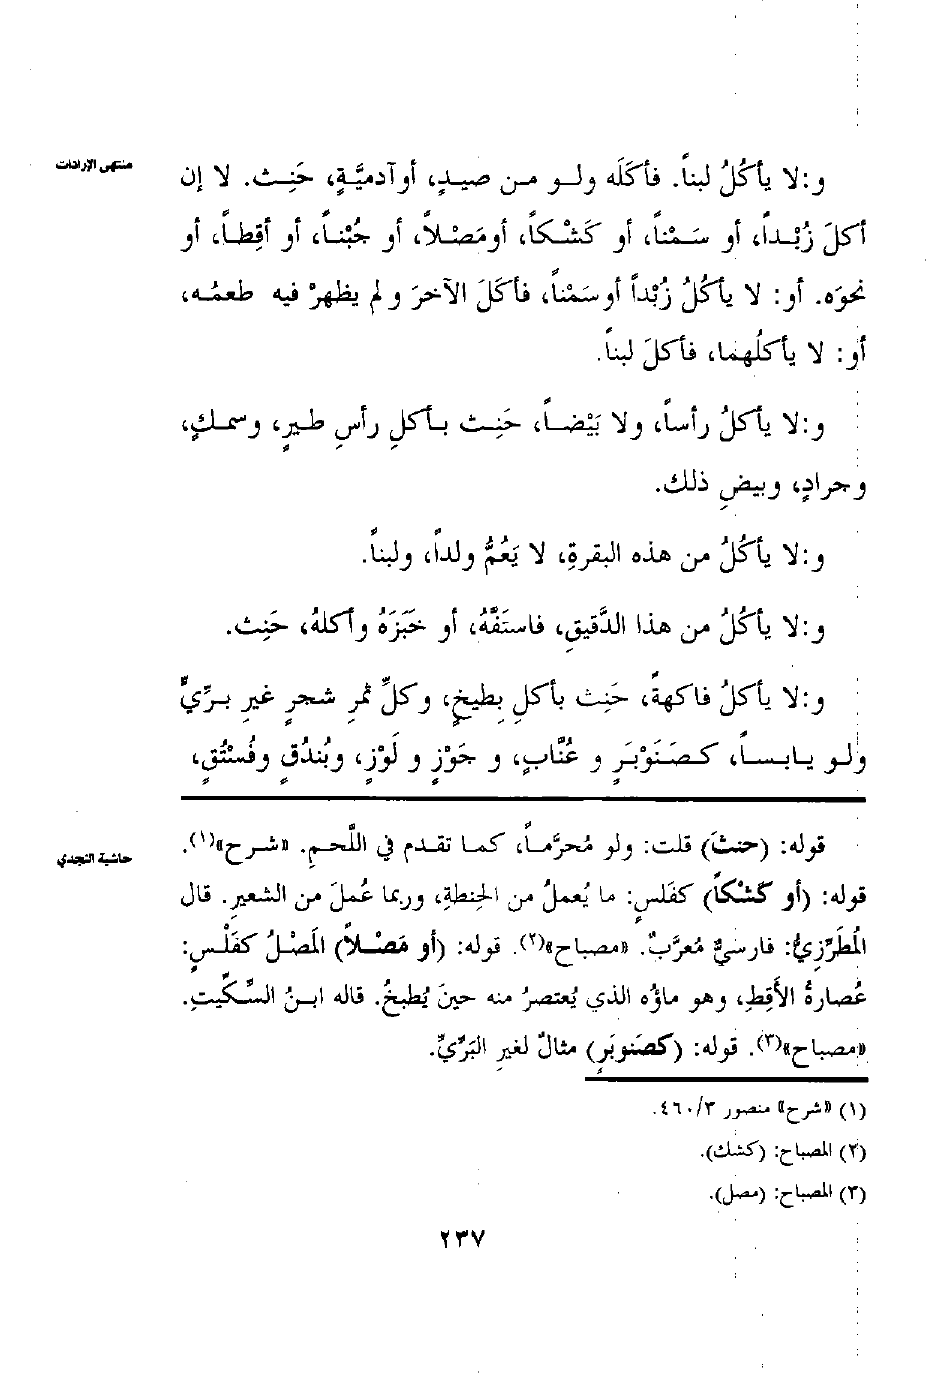 منتهى الإرادات
و:لا يأكُلُ لبناً. فأكَلَه ولو من صيدٍ، أوآدميَّةٍ، حَنِث. لا إن
أكلَ زُبْداً، أو سَمْناً، أو كَشْكاً، أومَصْلاً، أو جُبْناً، أو أقِطاً، أو
نحوَه. أو: لا يأكُلُ زُبْداً أوسَمْناً، فأكَلَ الآخرَ ولم يظهرْ فيه طعمُه،
أو: لا يأكلُهما، فأكلَ لبناً.
و:لا يأكلُ رأساً، ولا بَيْضاً، حَنِث بأكلِ رأسِ طيرٍ، وسمكٍ،
وجرادٍ، وبيضِ ذلك.
و:لا يأكُلُ من هذه البقرةِ، لا يَعُمُّ ولداً، ولبناً.
و:لا يأكُلُ من هذا الدَّقيقِ، فاستَفَّهُ، أو خَبَزَهُ وأكلهُ، حَنِث.
و:لا يأكلُ فاكهةً، حَنِث بأكلِ بِطيخٍ، وكلِّ ثمرِ شجرٍ غيرِ بَرِّيٍّ
ولو يابساً، كصَنَوْبَرٍ و عُنَّابٍ، و جَوْزٍ و لَوْزٍ، وبُندُقٍ وفُسْتُقٍ،
حاشية النجدي
قوله: (حنثَ) قلت: ولو مُحرَّماً، كما تقدم في اللَّحمِ. «شرح»(١).
قوله: (أو كَشْكاً) كفَلسٍ: ما يُعملُ من الحِنطةِ، وربما عُملَ من الشعيرِ. قال
المُطَرِّزِيُّ: فارسيٌّ مُعرَّبٌ. «مصباح»(٢). قوله: (أو مَصْلاً) المَصْلُ كفَلْسٍ:
عُصارةُ الأَقِطِ، وهو ماؤُه الذي يُعتصرُ منه حينَ يُطبخُ. قاله ابنُ السِّكِّيتِ.
«مصباح»(٣). قوله: (كصَنوبَرٍ) مثالٌ لغيرِ البَرِّيِّ.
(١) «شرح» منصور ٤٦٠/٣.
(٢) المصباح: (كشك).
(٣) المصباح: (مصل).
٢٣٧